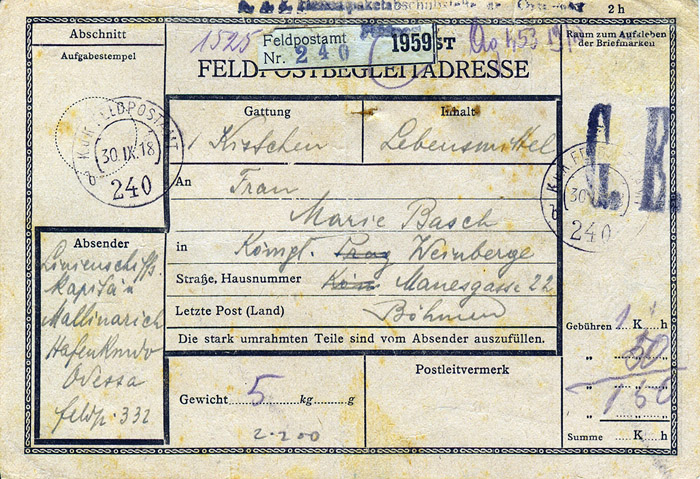 2 h
Abschnitt
Aufgabestempel
1525
Feldpostamt
Nr. 240
1959
FELDPOSTBEGLEITADRESSE
Raum zum Aufkleben
der Briefmarken
K.u.K. FELDPOSTAMT
30.IX.18
b
240
Gattung
Inhalt
1 Kistchen
Lebensmittel
An
Frau
Marie Basch
in
Königl. Prag Weinberge
Straße, Hausnummer
Manesgasse 22
Letzte Post (Land)
Böhmen
Die stark umrahmten Teile sind vom Absender auszufüllen.
Absender
Linienschiffs
Kapitän
Mallinarich
Hafenkmdo
Odessa
feldp. 332
Gewicht 5 kg g
2.200
Postleitvermerk
Gebühren 1 K h
" 50 "
" 150 "
Summe K h
K.u.K. FE
30
b
240